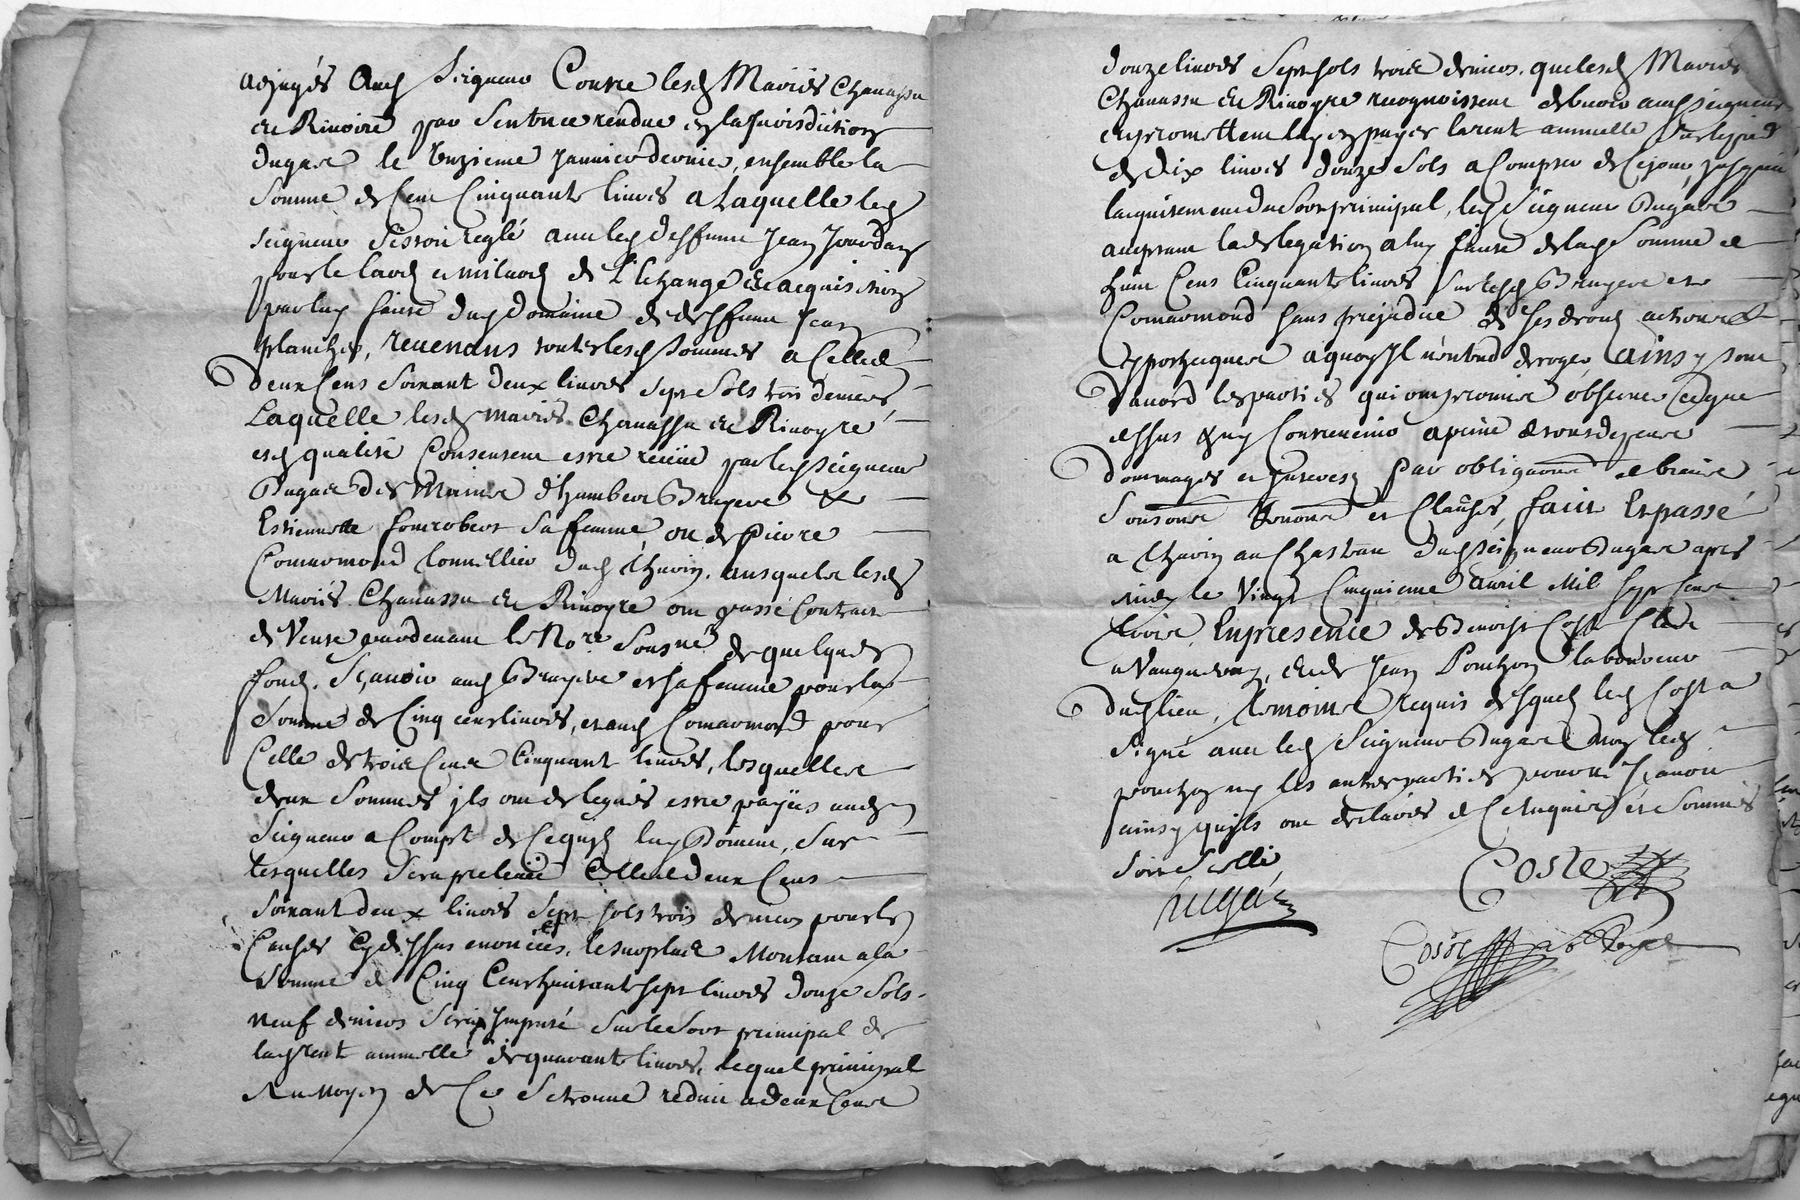 adjugés aud Seigneur Contre lesd Mariés Chanassu
et Rivoire par Sentence rendue en la Jurisdiction
dugare le Unzieme Janvier dernier, ensemble la
Somme de Cent Cinquante livres a Laquelle led
Seigneur Sestoit reglé avec led deffunt Jean Jourdan
pour le laod et milaod de L'Echange et acquisition
par luy faitte dud Domaine de deffunt Jean
planchet, revenans toutes lesd Sommes a Celle de
deux Cens Soixant deux livres Sept Sols trois deniers
Laquelle lesd mariés Chanassu et Rivoyre
esd qualité Consentent estre receüe par led seigneur
Dugare des Mains d'humbert Bruyere &
Estiennette fomrobert Sa femme, ou de pierre
Comarmond Tonnellier dud Thurin, ausquels lesd
Mariés Chanassu et Rivoyre ont passé Contract
de Vente pardevant le No.re Sousné de quelques
fonds, Sçavoir aud Bruyere et sa femme pour la
Somme de Cinq cens livres, et aud Comarmond pour
Celle de trois Cens Cinquant livres, lesquelles
deux Sommes ils ont delegués estre payées aud
Seigneur a Compte de Cequils luy Doivent, Sur
lesquelles Sera prelevée Celle de deux Cens
Soixant deux livres Sept Sols trois deniers pour les
Causes Cydessus enoncées, le surplus Montant a la
Somme de Cinq Cens huitant sept livres douze Sols
Neuf deniers Sera Imputé Sur le Sort principal de
lad rente annuelle de quarante livres, lequel principal
Au moyen de Ce Se trouve reduit a deux Cens
douze livres Sept Sols trois deniers, que lesd Mariés
Chanassu et Rivoyre recognoissent debvoir aud Seigneur
et promettent luy en payer la rent annuelle Sur le pied
de Dix livres douze Sols a Compter de Cejour, jusques a
lacquitement du Sort principal, led Seigneur Dugare
acceptant la delegation a luy faitte de lad Somme de
huit Cens Cinquante livres Sur lesd Bruyere et
Comarmond Sans prejudice de Ses droits actions et
hypotheques a quoy Il n'entend deroger, ainsy sont
D'accord les parties qui ont promis observer Ceque
dessus & ny Contrevenir a peine de tous despens
dommages et Interests par obligations de biens
Sousmis Renons et Clauses, fait Et passé
a Thurin au Chasteau dud seigneur Dugare apres
midy le Vingt Cinquieme avril Mil Sept Cens
Trois, En presence de Benoist Coste Clerc
a Vaugneray, et de Jean Ponchon laboureur
dud lieu, temoins requis desquels led Coste a
Signé avec led Seigneur Dugare non led
ponchon ny les autres parties pour ne Sçavoir
ainsy quils ont declarés de Ce Enquis et Sommés
Soit Scellé
Dugare
Coste
Coste no.re Royal